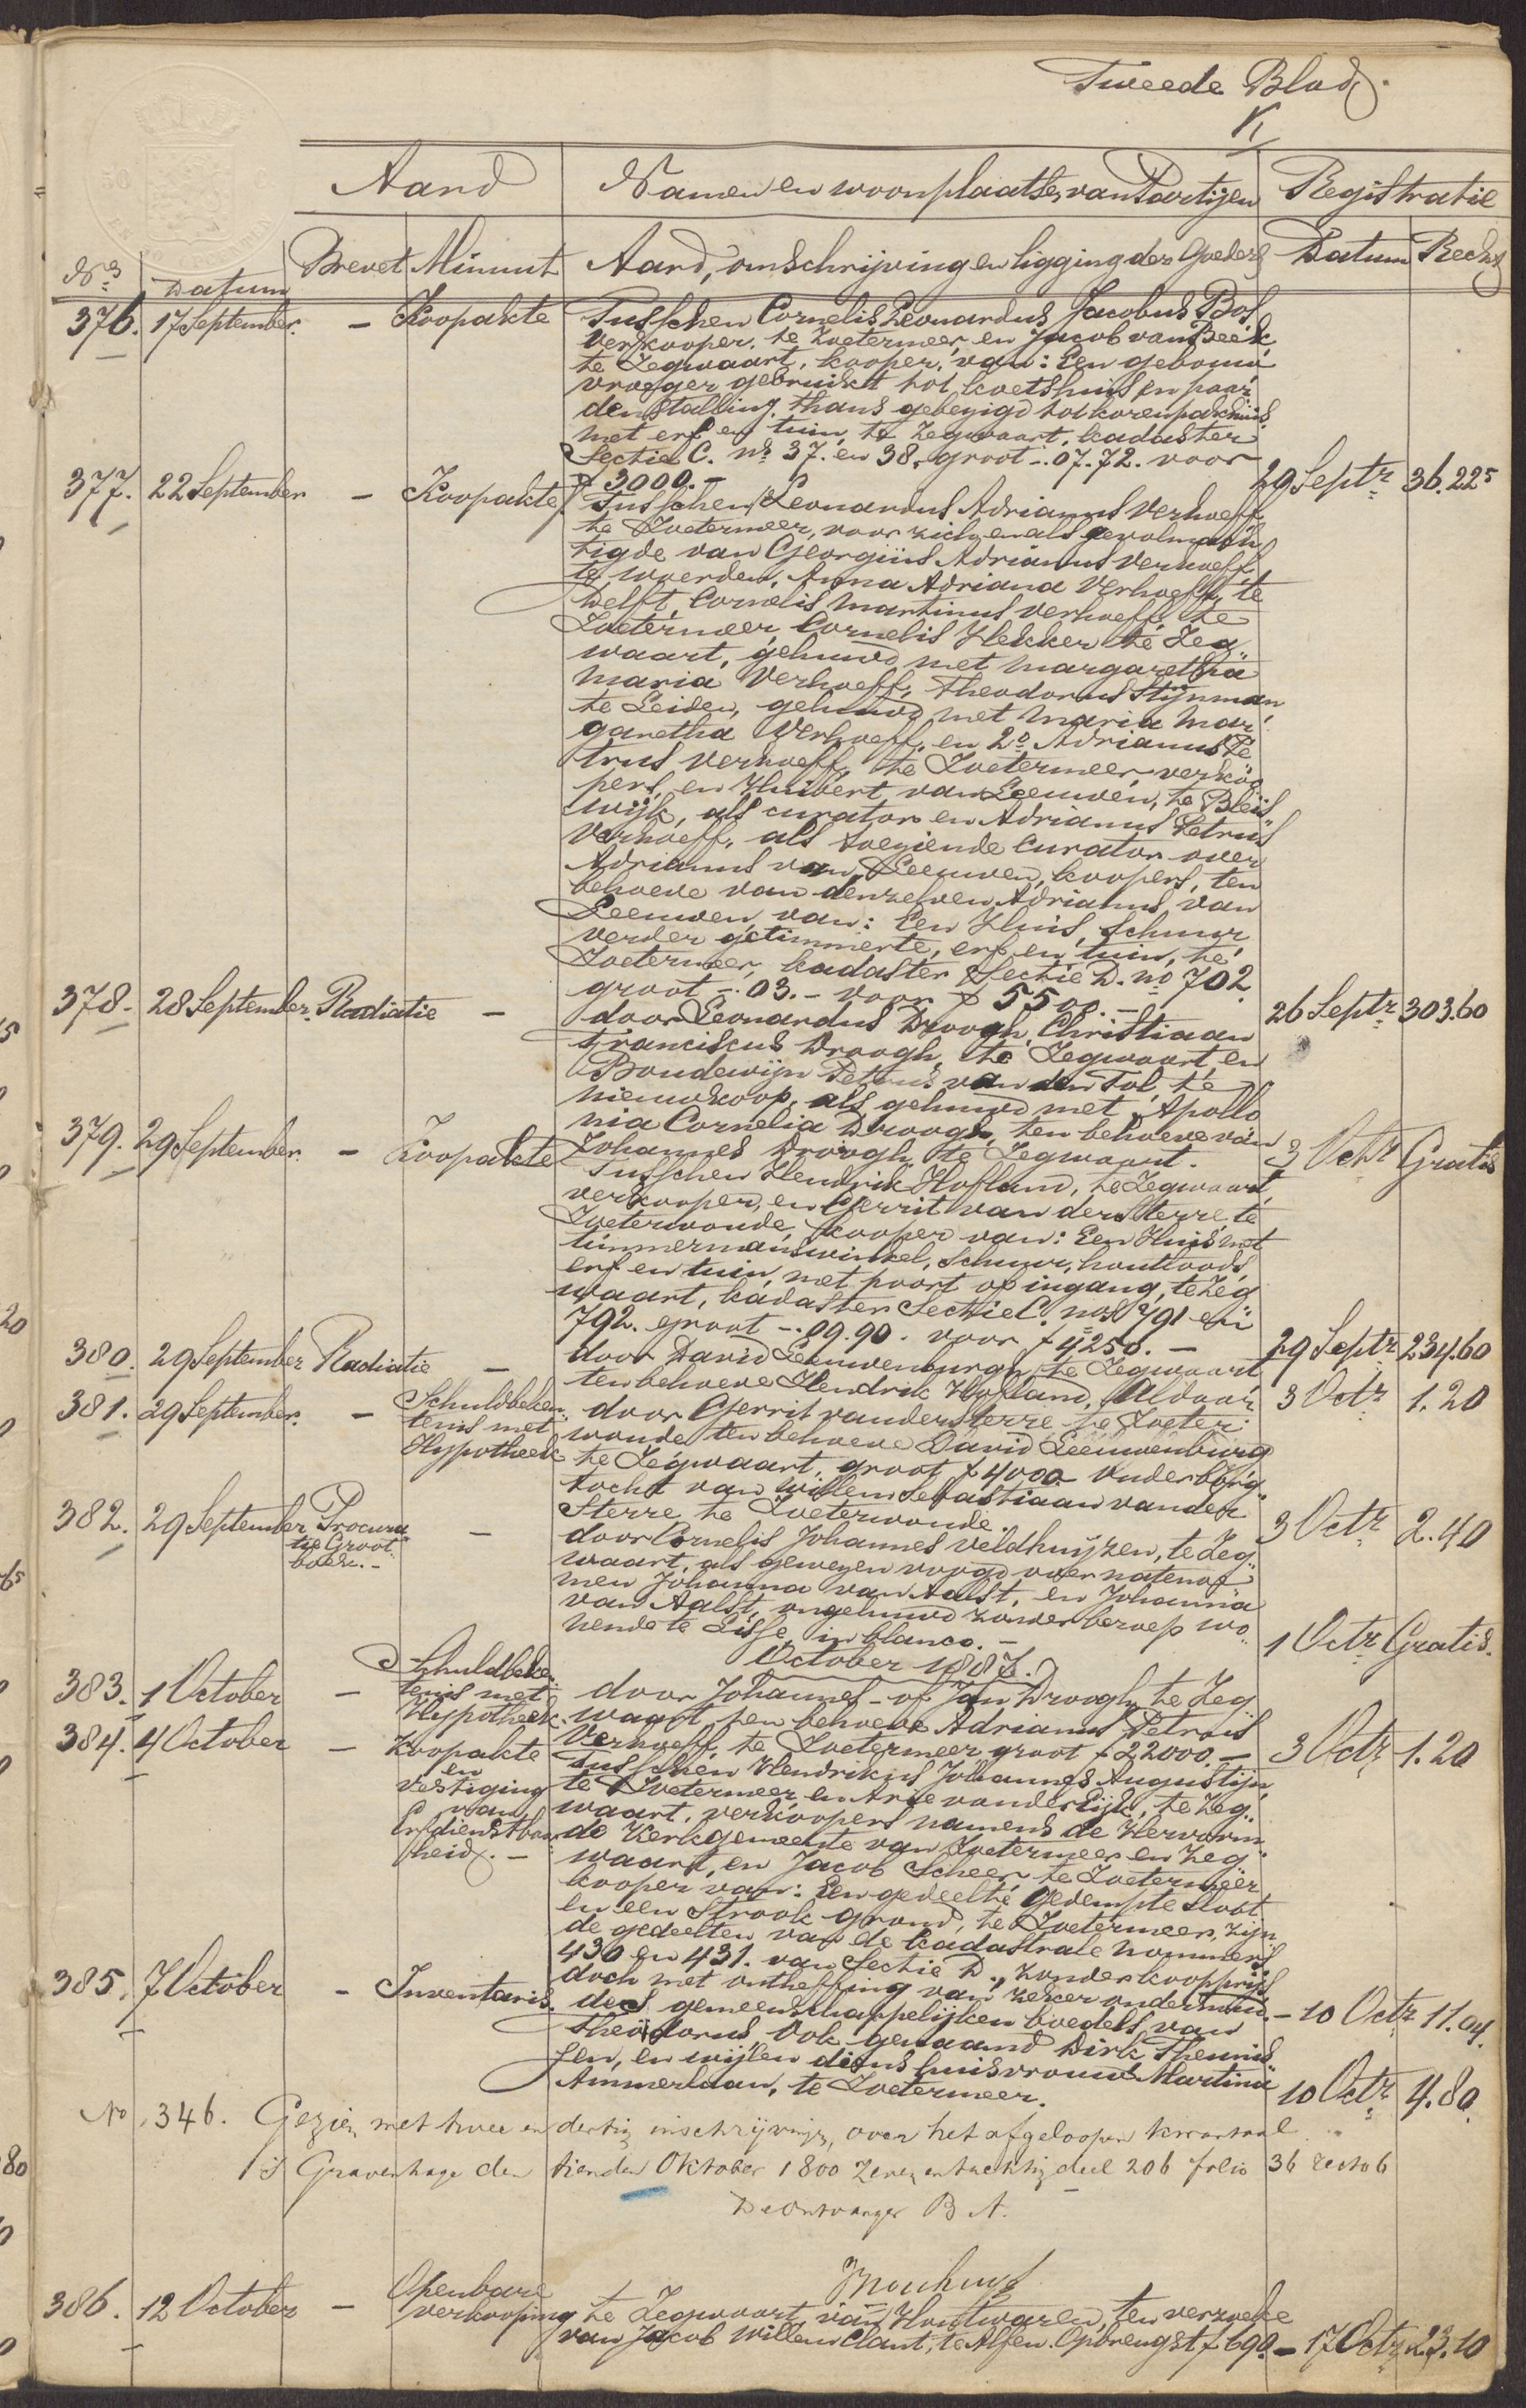 Tweede Blad.
Aard Namen en woonplaatsen van Partijen Registratie
Nos Datum Brevet Minuut Aard, omschrijving en ligging der Goederen Datum Recht
376. 17 September. - Koopakte Tusschen Cornelis Leonardus Jacobus Bos,
verkooper, te Zoetermeer, en Jacob van Beek
te Zegwaart, kooper, van: Een gebouw
vroeger gebruikt tot koetshuis en paar
denstalling, thans gebezigd tot korenpakhuis
met erf en tuin, te Zegwaart, kadaster
Sectie C. no 37. en 38. groot -. 07. 72. voor
f 3000.- 29 Septr 36.225
377. 22 September - Koopakte Tusschen Leonardus Adrianus Verhoeff
te Zoetermeer, voor zich en als gevolmach
tigde van Georgius Adrianus Verhoeff
te Woerden, Anna Adriana Verhoeff, te
Delft, Cornelis Martinus Verhoeff, te
Zoetermeer, Cornelis Hekker te Zeg„
waart, gehuwd met Margaretha
Maria Verhoeff, Theodorus Stijnman,
te Leiden, gehuwd met Maria Mar
garetha Verhoeff, en 2o Adrianus Pe
trus Verhoeff, te Zoetermeer, verkoo
pers, en Huibert van Leeuwen, te Bleis„
wijk, als curator en Adrianus Petrus
Verhoeff, als toeziende Curator over
Adrianus van Leeuwen, koopers, ten
behoeve van denzelven Adrianus van
Leeuwen, van: Een Huis, schuur
verder getimmerte, erf en tuin, te
Zoetermeer, kadaster Sectie D. no 702.
groot -. 03. - voor f 5500. - 26 Septr 303.60
378. 28 September. Radiatie - door Leonardus Droogh, Christiaan
Franciscus Droogh, te Zegwaart, en
Boudewijn Petrus van den Tol, te
Nieuwkoop, als gehuwd met Apollo
nia Cornelia Droogh, ten behoeve van
Johannes Droogh te Zegwaart. 3 Octr Gratis
379. 29 September. - Koopakte Tusschen Hendrik Hofland, te Zegwaart,
verkooper, en Gerrit van der Sterre, te
Zoeterwoude, kooper van: Een Huis met
timmermanswinkel, schuur, houtloods,
erf en tuin, met poort of ingang, te Zeg
waart, kadaster Sectie C. nos 791 en
792. groot -. 09. 90. voor f 4250. - 29 Septr 234.60
380. 29 September Radiatie - door David Leeuwenburgh, te Zegwaart
ten behoeve Hendrik Hofland, Aldaar 3 Octr 1.20
381. 29 September. - Schuldbeken„ door Gerrit van der Sterre te Zoeter„
tenis met woude ten behoeve David Leeuwenburg
Hypotheek te Zegwaart, groot f 4000 Onder borg„
tocht van Willem Sebastiaan van der
Sterre te Zoeterwoude. 3 Octr 2.40
382. 29 September Procura - door Cornelis Johannes Veldhuijzen, te Zeg„
tie Groot waart, als gewezen voogd over
boek.- men Johanna van Aalst, en Johanna
van Aalst, ongehuwd zonder beroep wo„
nende te Lisse, in blanco. - 1 Octr Gratis.
October 1887.
383. 1 October - Schuldbeke„ door Johannes - of Jan Droogh, te Zeg
tenis met waart, ten behoeve Adrianus Petrus
Hypotheek. Verhoeff, te Zoetermeer, groot f 22000. - 3 Octr 1.20
384. 4 October - Koopakte Tusschen Hendrikus Johannes Augustijn,
en te Zoetermeer, en Arie van der Eijk, te Zeg„
vestiging waart, verkoopers namens de Hervorm„
van de Kerkgemeente van Zoetermeer en Zeg„
Erfdienstbaar waart, en Jacob Scheer, te Zoetermeer
heid. - kooper van: Een gedeelte Gedempte sloot
en een Strook grond, te Zoetermeer, zijn
de gedeelten van de kadastrale nommers
430 en 431. van Sectie D., zonder koopprijs
doch met ontheffing van zeker onderhoud. - 10 Octr 11.04.
385. 7 October - Inventaris. des gemeenschappelijken boedels van
Theodorus ook genaamd Dirk Theunis
sen, en wijlen diens huisvrouw Martina
Ammerlaan, te Zoetermeer. 10 Octr 4.80
No 346. Gezien met twee en dertig inschrijvingen, over het afgeloopen kwartaal.
's Gravenhage den tienden Oktober 1800 zeven en tachtig deel 206 folio 36 recto 6
De Ontvanger B A.
386. 12 October - Openbare
verkooping te Zegwaart, van Houtwaren, ten verzoeke
van Jacob Willem Clant, te Alfen. Opbrengst f 690. - 17 Octr 23.10